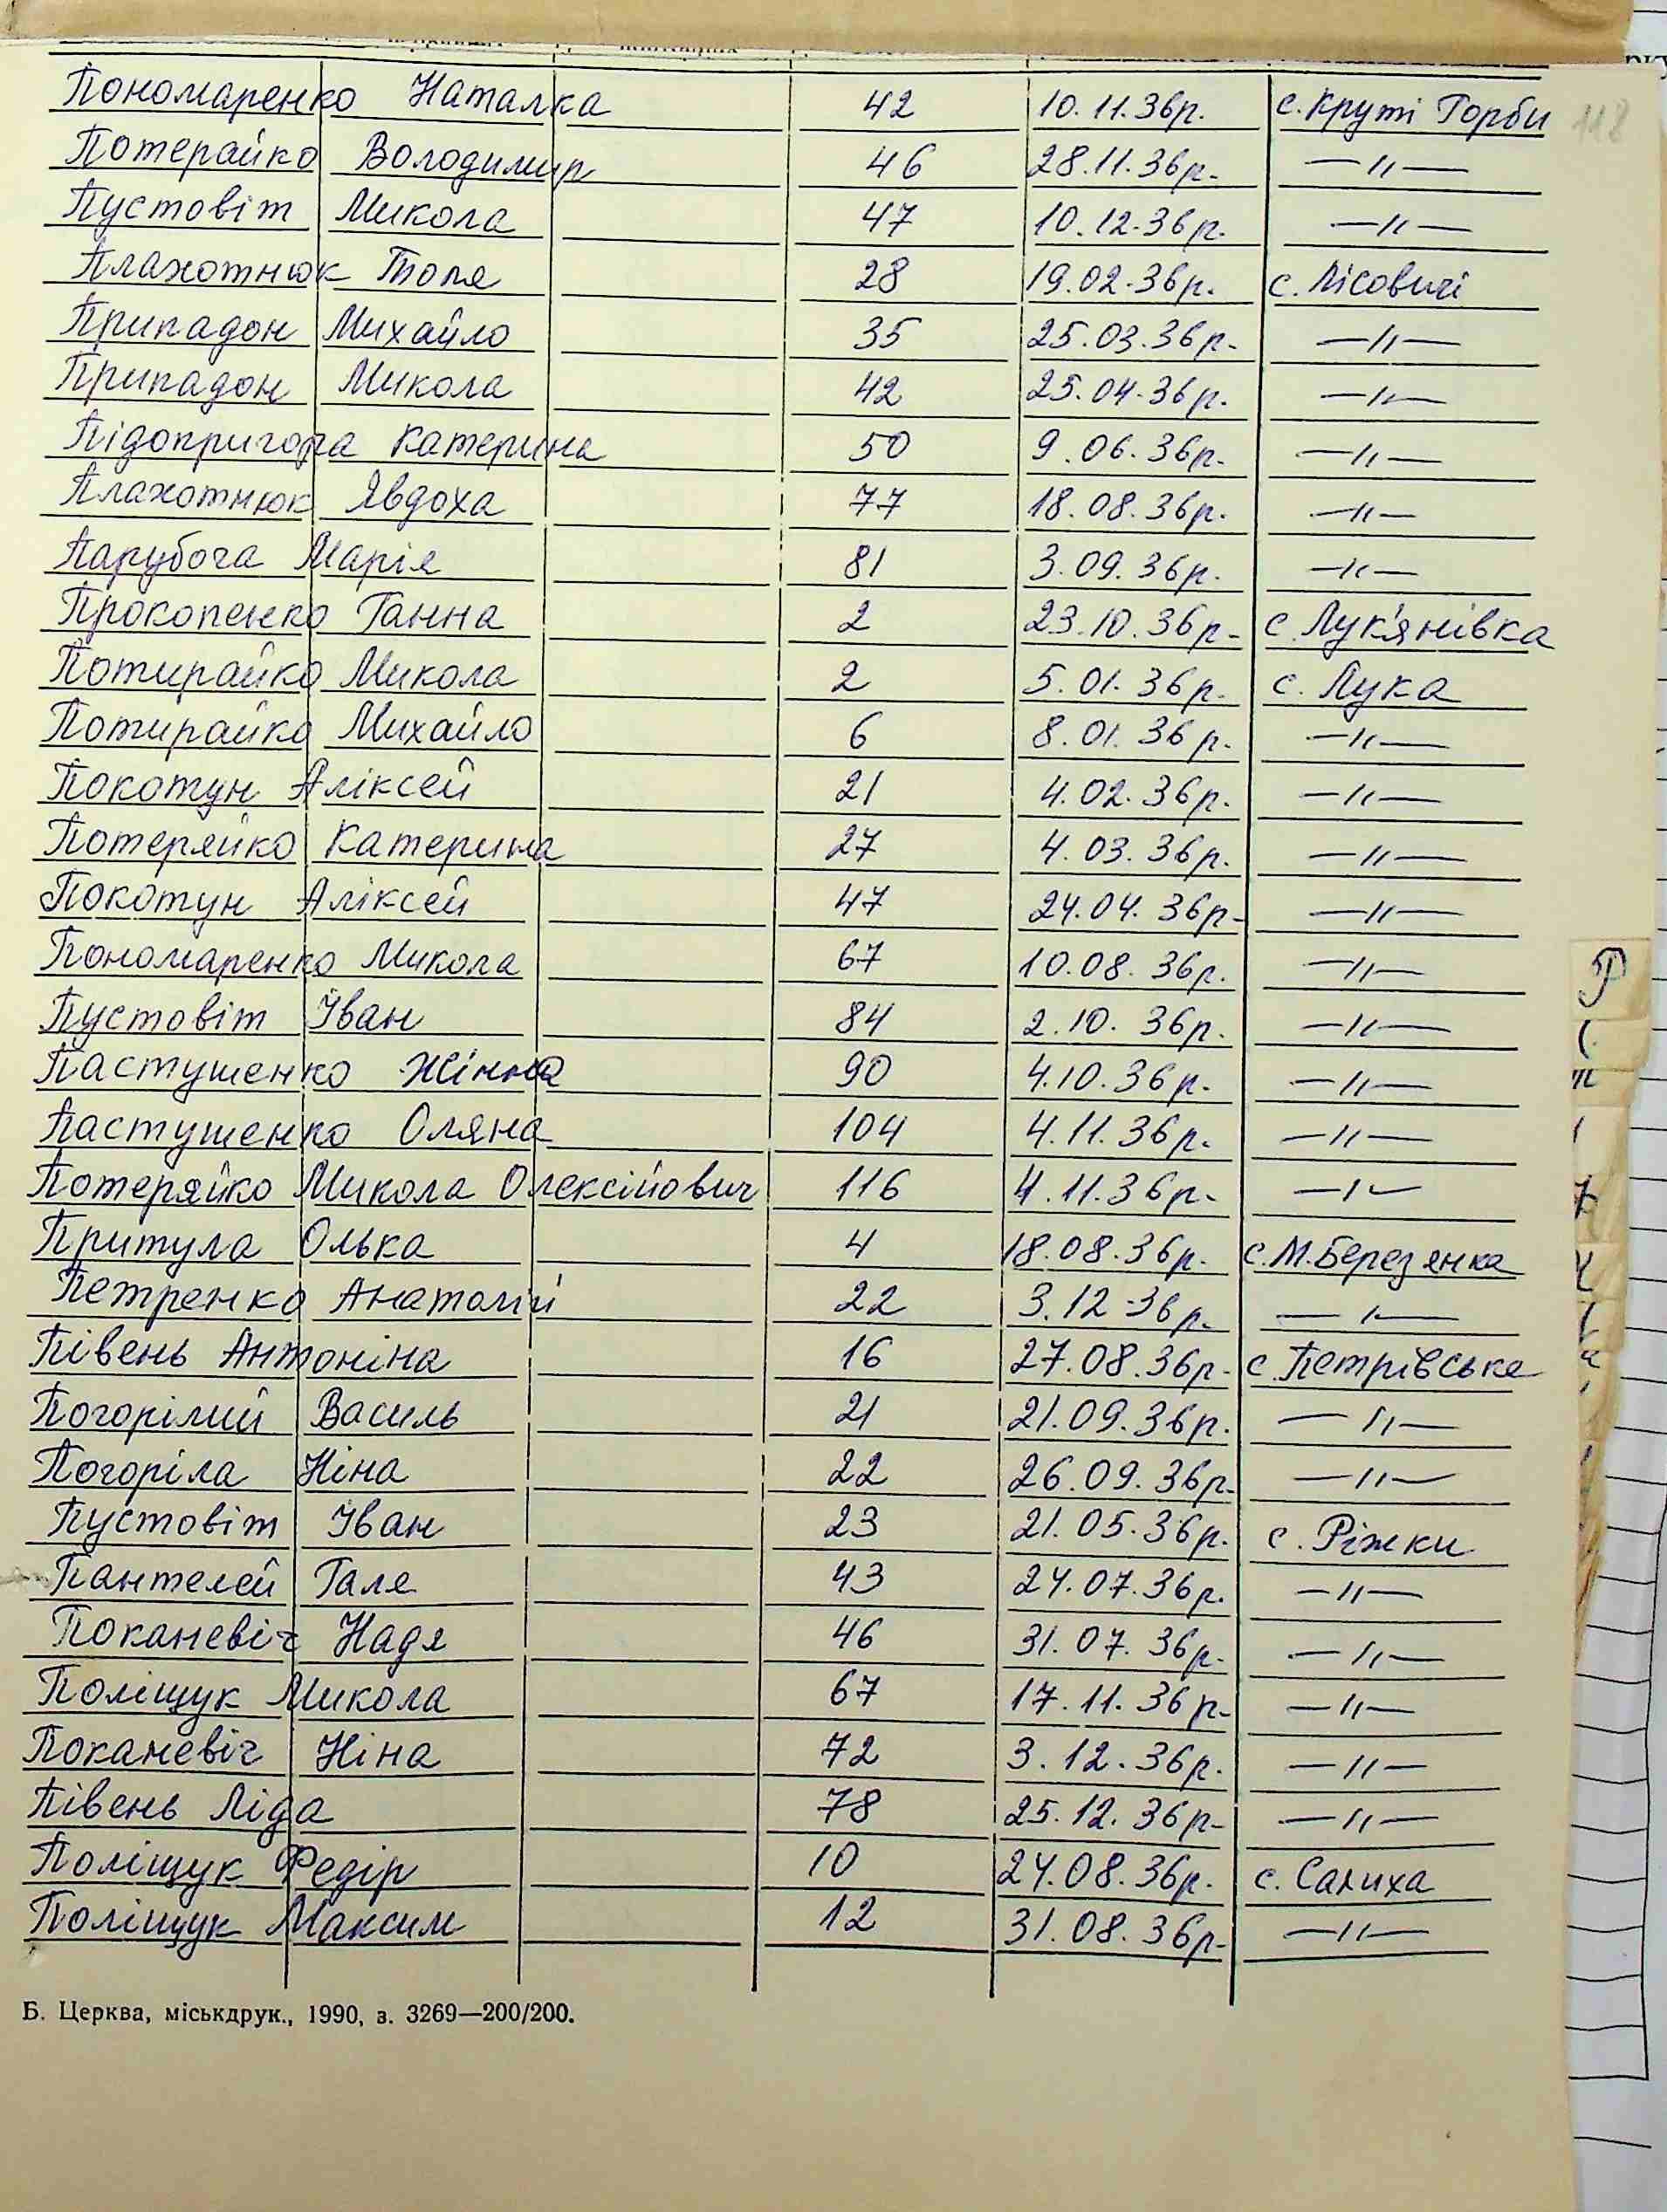 Пономаренко Наталка 42 10.11.36р. с. Круті Горби 118
Потерайко Володимир 46 28.11.36р. —"—
Пустовіт Микола 47 10.12.36р. —"—
Плахотнюк Толя 28 19.02.36р. с. Лісовичі
Припадон Михайло 35 25.03.36р. —"—
Припадон Микола 42 25.04.36р. —"—
Підопригора Катерина 50 9.06.36р. —"—
Плахотнюк Явдоха 77 18.08.36р. —"—
Парубоча Марія 81 3.09.36р. —"—
Прокопенко Ганна 2 23.10.36р. с. Лук'янівка
Потирайко Микола 2 5.01.36р. с. Лука
Потирайко Михайло 6 8.01.36р. —"—
Покотун Аліксей 21 4.02.36р. —"—
Потеряйко Катерина 27 4.03.36р. —"—
Покотун Аліксей 47 24.04.36р. —"—
Пономаренко Микола 67 10.08.36р. —"—
Пустовіт Іван 84 2.10.36р. —"—
Пастушенко Жінна 90 4.10.36р. —"—
Пастушенко Оляна 104 4.11.36р. —"—
Потеряйко Микола Олексійович 116 4.11.36р. —"—
Притула Олька 4 18.08.36р. с. М.Березянка
Петренко Анатолій 22 3.12.36р. —"—
Півень Антоніна 16 27.08.36р. с. Петрівське
Погорілий Василь 21 21.09.36р. —"—
Погоріла Ніна 22 26.09.36р. —"—
Пустовіт Іван 23 21.05.36р. с. Ріжки
Пантелей Галя 43 24.07.36р. —"—
Поканевіч Надя 46 31.07.36р. —"—
Поліщук Микола 67 17.11.36р. —"—
Поканевіч Ніна 72 3.12.36р. —"—
Півень Ліда 78 25.12.36р. —"—
Поліщук Федір 10 24.08.36р. с. Салиха
Поліщук Максим 12 31.08.36р. —"—
Б. Церква, міськдрук., 1990, з. 3269—200/200.